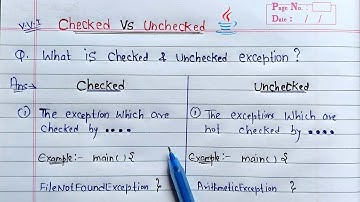 V.V.I Checked Vs Unchecked
Page No.:
Date: / /
Q. What is Checked & Unchecked exception?
Ans→ Checked Unchecked
① The exception which are checked by ....
① The exceptions which are not checked by ....
Example:- main() {
Example:- main() {
FileNotFoundException }
ArithmeticException }